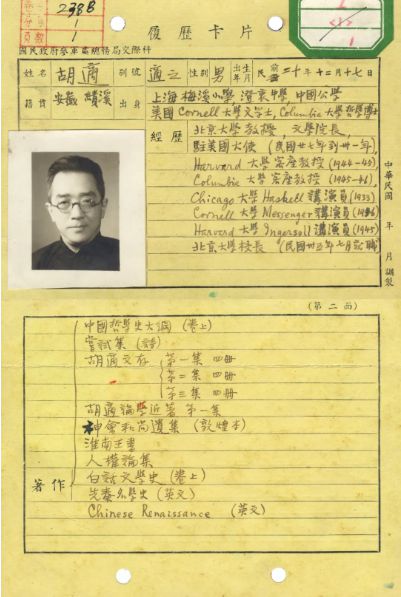 238B
1
1
履歷卡片
國民政府參軍處總務局交際科
姓名 胡適 別號 適之 性別 男 出生年月 民前二十年十二月十七日
籍貫 安徽 績溪 出身 上海梅溪小學, 澄衷中學, 中國公學
美國 Cornell 大學文學士, Columbia 大學哲學博士
經歷 北京大學教授, 文學院長,
駐美國大使 (民國廿七年到卅一年),
Harvard 大學客座教授 (1944-45)
Columbia 大學客座教授 (1945-46),
Chicago 大學 Haskell 講演員 (1933)
Cornell 大學 Messenger 講演員 (1946)
Harvard 大學 Ingersoll 講演員 (1945)
北京大學校長 (民國卅五年七月就職)
中華民國 年 月 填製
(第二面)
著作
中國哲學史大綱 (卷上)
嘗試集 (詩)
胡適文存 第一集 四冊
第二集 四冊
第三集 四冊
胡適論學近著 第一集
神會和尚遺集 (敦煌本)
淮南王書
人權論集
白話文學史 (卷上)
先秦名學史 (英文)
Chinese Renaissance (英文)